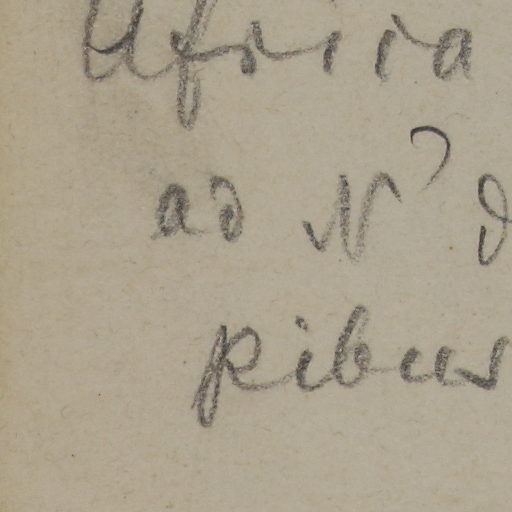 Africa
ad N
pibus